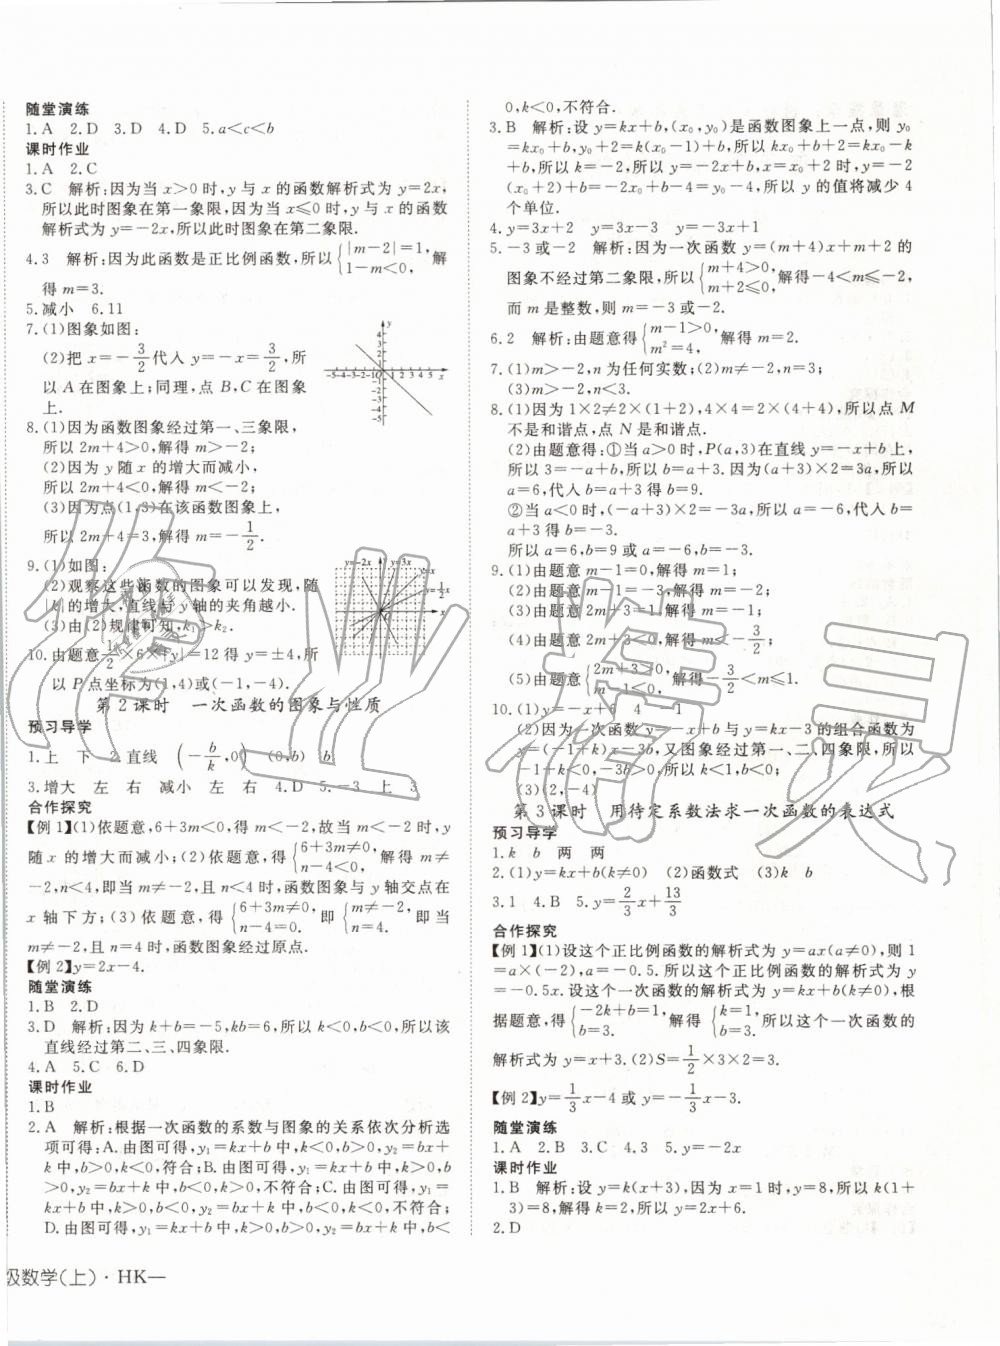 随堂演练
1.A 2.D 3.D 4.D 5.a<c<b
课时作业
1.A 2.C
3.C 解析:因为当 x>0 时,y 与 x 的函数解析式为 y=2x,
所以此时图象在第一象限,因为当 x≤0 时,y 与 x 的函数
解析式为 y=-2x,所以此时图象在第二象限.
4.3 解析:因为此函数是正比例函数,所以{|m-2|=1, 1-m<0, 解
得 m=3.
5.减小 6.11
7.(1)图象如图:
(2)把 x=-3/2代入 y=-x=3/2,所
以 A 在图象上;同理,点 B,C 在图象
上.
8.(1)因为函数图象经过第一、三象限,
所以 2m+4>0,解得 m>-2;
(2)因为 y 随 x 的增大而减小,
所以 2m+4<0,解得 m<-2;
(3)因为点(1,3)在该函数图象上,
所以 2m+4=3,解得 m=-1/2.
9.(1)如图:
(2)观察这些函数的图象可以发现,随
|k|的增大,直线与 y 轴的夹角越小.
(3)由(2)规律可知,k₁>k₂.
10.由题意1/2×6×|y|=12得 y=±4,所
以 P 点坐标为(1,4)或(-1,-4).
第 2 课时 一次函数的图象与性质
预习导学
1.上 下 2.直线 (-b/k,0) (0,b) b
3.增大 左 右 减小 左 右 4.D 5.-3 上 3
合作探究
【例 1】(1)依题意,6+3m<0,得 m<-2,故当 m<-2 时,y
随 x 的增大而减小;(2)依题意,得{6+3m≠0, n-4<0, 解得 m≠
-2,n<4,即当 m≠-2,且 n<4 时,函数图象与 y 轴交点在
x 轴下方;(3)依题意,得{6+3m≠0, n-4=0. 即{m≠-2, n=4. 即当
m≠-2,且 n=4 时,函数图象经过原点.
【例 2】y=2x-4.
随堂演练
1.B 2.D
3.D 解析:因为 k+b=-5,kb=6,所以 k<0,b<0,所以该
直线经过第二、三、四象限.
4.A 5.C 6.D
课时作业
1.B
2.A 解析:根据一次函数的系数与图象的关系依次分析选
项可得:A.由图可得,y₁=kx+b 中,k<0,b>0,y₂=bx+
k 中,b>0,k<0,符合;B.由图可得,y₁=kx+b 中,k>0,b
>0,y₂=bx+k 中,b<0,k>0,不符合;C.由图可得,y₁=
kx+b 中,k>0,b<0,y₂=bx+k 中,b<0,k<0,不符合;
D.由图可得,y₁=kx+b 中,k>0,b>0,y₂=bx+k 中,b<
0,k<0,不符合.
3.B 解析:设 y=kx+b,(x₀,y₀)是函数图象上一点,则 y₀
=kx₀+b,y₀+2=k(x₀-1)+b,所以 kx₀+b+2=kx₀-k
+b,所以 k=-2,所以 y=-2x+b,x=x₀+2 时,y=-2
(x₀+2)+b=-2x₀+b-4=y₀-4,所以 y 的值将减少 4
个单位.
4.y=3x+2 y=3x-3 y=-3x+1
5.-3 或-2 解析:因为一次函数 y=(m+4)x+m+2 的
图象不经过第二象限,所以{m+4>0, m+2≤0, 解得-4<m≤-2,
而 m 是整数,则 m=-3 或-2.
6.2 解析:由题意得{m-1>0, m²=4, 解得 m=2.
7.(1)m>-2,n 为任何实数;(2)m≠-2,n=3;
(3)m>-2,n<3.
8.(1)因为 1×2≠2×(1+2),4×4=2×(4+4),所以点 M
不是和谐点,点 N 是和谐点.
(2)由题意得:①当 a>0 时,P(a,3)在直线 y=-x+b 上,
所以 3=-a+b,所以 b=a+3.因为(a+3)×2=3a,所以
a=6,代入 b=a+3 得 b=9.
②当 a<0 时,(-a+3)×2=-3a,所以 a=-6,代入 b=
a+3 得 b=-3.
所以 a=6,b=9 或 a=-6,b=-3.
9.(1)由题意 m-1=0,解得 m=1;
(2)由题意 m-1=-3,解得 m=-2;
(3)由题意 2m+3=1,解得 m=-1;
(4)由题意 2m+3<0,解得 m<-3/2;
(5)由题意{2m+3>0, m-1<0. 解得-3/2<m≤1.
10.(1)y=-x+6 4 -1
(2)因为一次函数 y=-x+b 与 y=kx-3 的组合函数为
y=(-1+k)x-3b,又图象经过第一、二、四象限,所以
-1+k<0,-3b>0,所以 k<1,b<0;
(3)(2,-4)
第 3 课时 用待定系数法求一次函数的表达式
预习导学
1.k b 两 两
2.(1)y=kx+b(k≠0) (2)函数式 (3)k b
3.1 4.B 5.y=2/3x+13/3
合作探究
【例 1】(1)设这个正比例函数的解析式为 y=ax(a≠0),则 1
=a×(-2),a=-0.5.所以这个正比例函数的解析式为 y
=-0.5x.设这个一次函数的解析式为 y=kx+b(k≠0),根
据题意,得{-2k+b=1, b=3. 解得{k=1, b=3. 所以这个一次函数的
解析式为 y=x+3.(2)S=1/2×3×2=3.
【例 2】y=1/3x-4 或 y=-1/3x-3.
随堂演练
1.A 2.B 3.C 4.3 5.y=-2x
课时作业
1.B 解析:设 y=k(x+3),因为 x=1 时,y=8,所以 k(1+
3)=8,解得 k=2,所以 y=2x+6.
2.D
级数学(上)·HK—
作业精灵